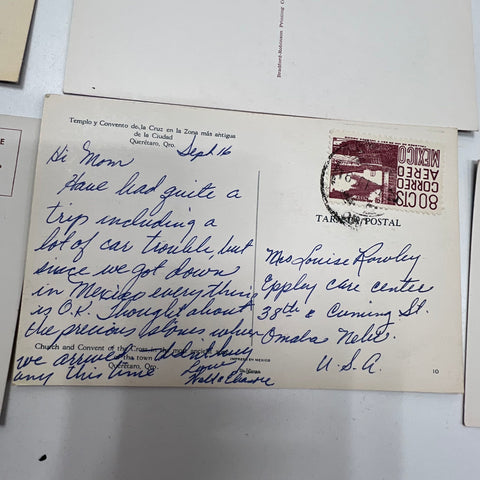 Bradford-Robinson Printing C
Templo y Convento de la Cruz en la Zona más antigua
de la Ciudad
Querétaro, Qro.
Sept 16
Hi Mom
Have had quite a
trip including a
lot of car trouble, but
since we got down
in Mexico everything
is O.K. Thought about
the precious stones when
we arrived didn't buy
any this time
Love
Church and Convent of the Cross
of the town
Querétaro, Qro.
MEXICO
AEREO
CORREO
80 CTS
TARJETA POSTAL
Mrs Louise Rowley
Eppley care center
38th & Cuming St.
Omaha Nebr.
U.S.A.
10